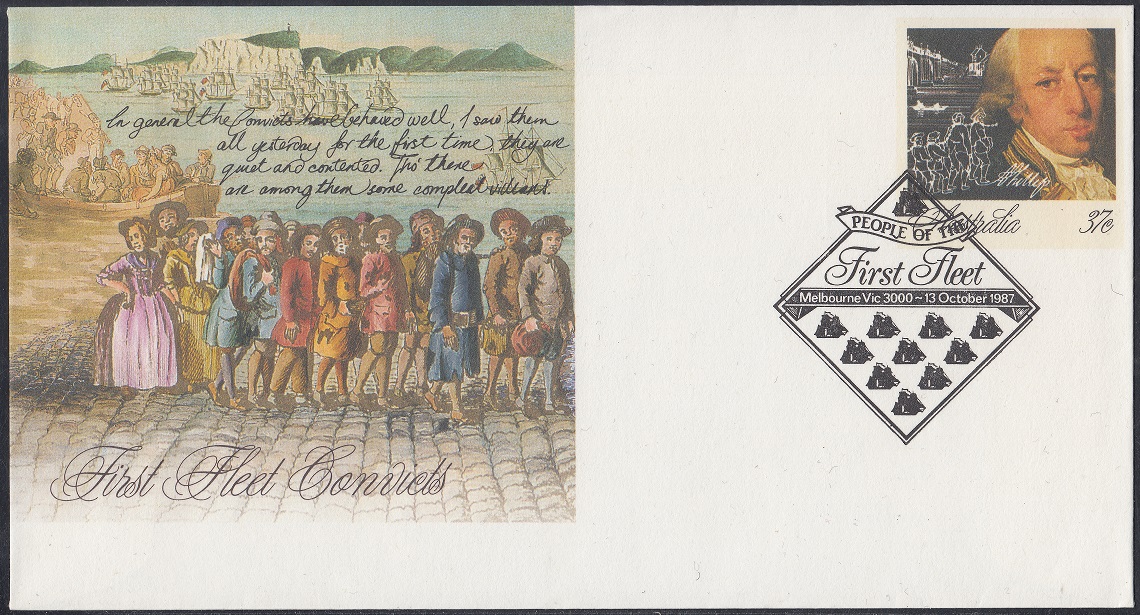 In general the Convicts have behaved well, I saw them
all yesterday for the first time, they are
quiet and contented. Tho' there
are among them some compleat villans.
First Fleet Convicts
A Phillip
Australia 37c
PEOPLE OF THE
First Fleet
Melbourne Vic 3000 ~ 13 October 1987